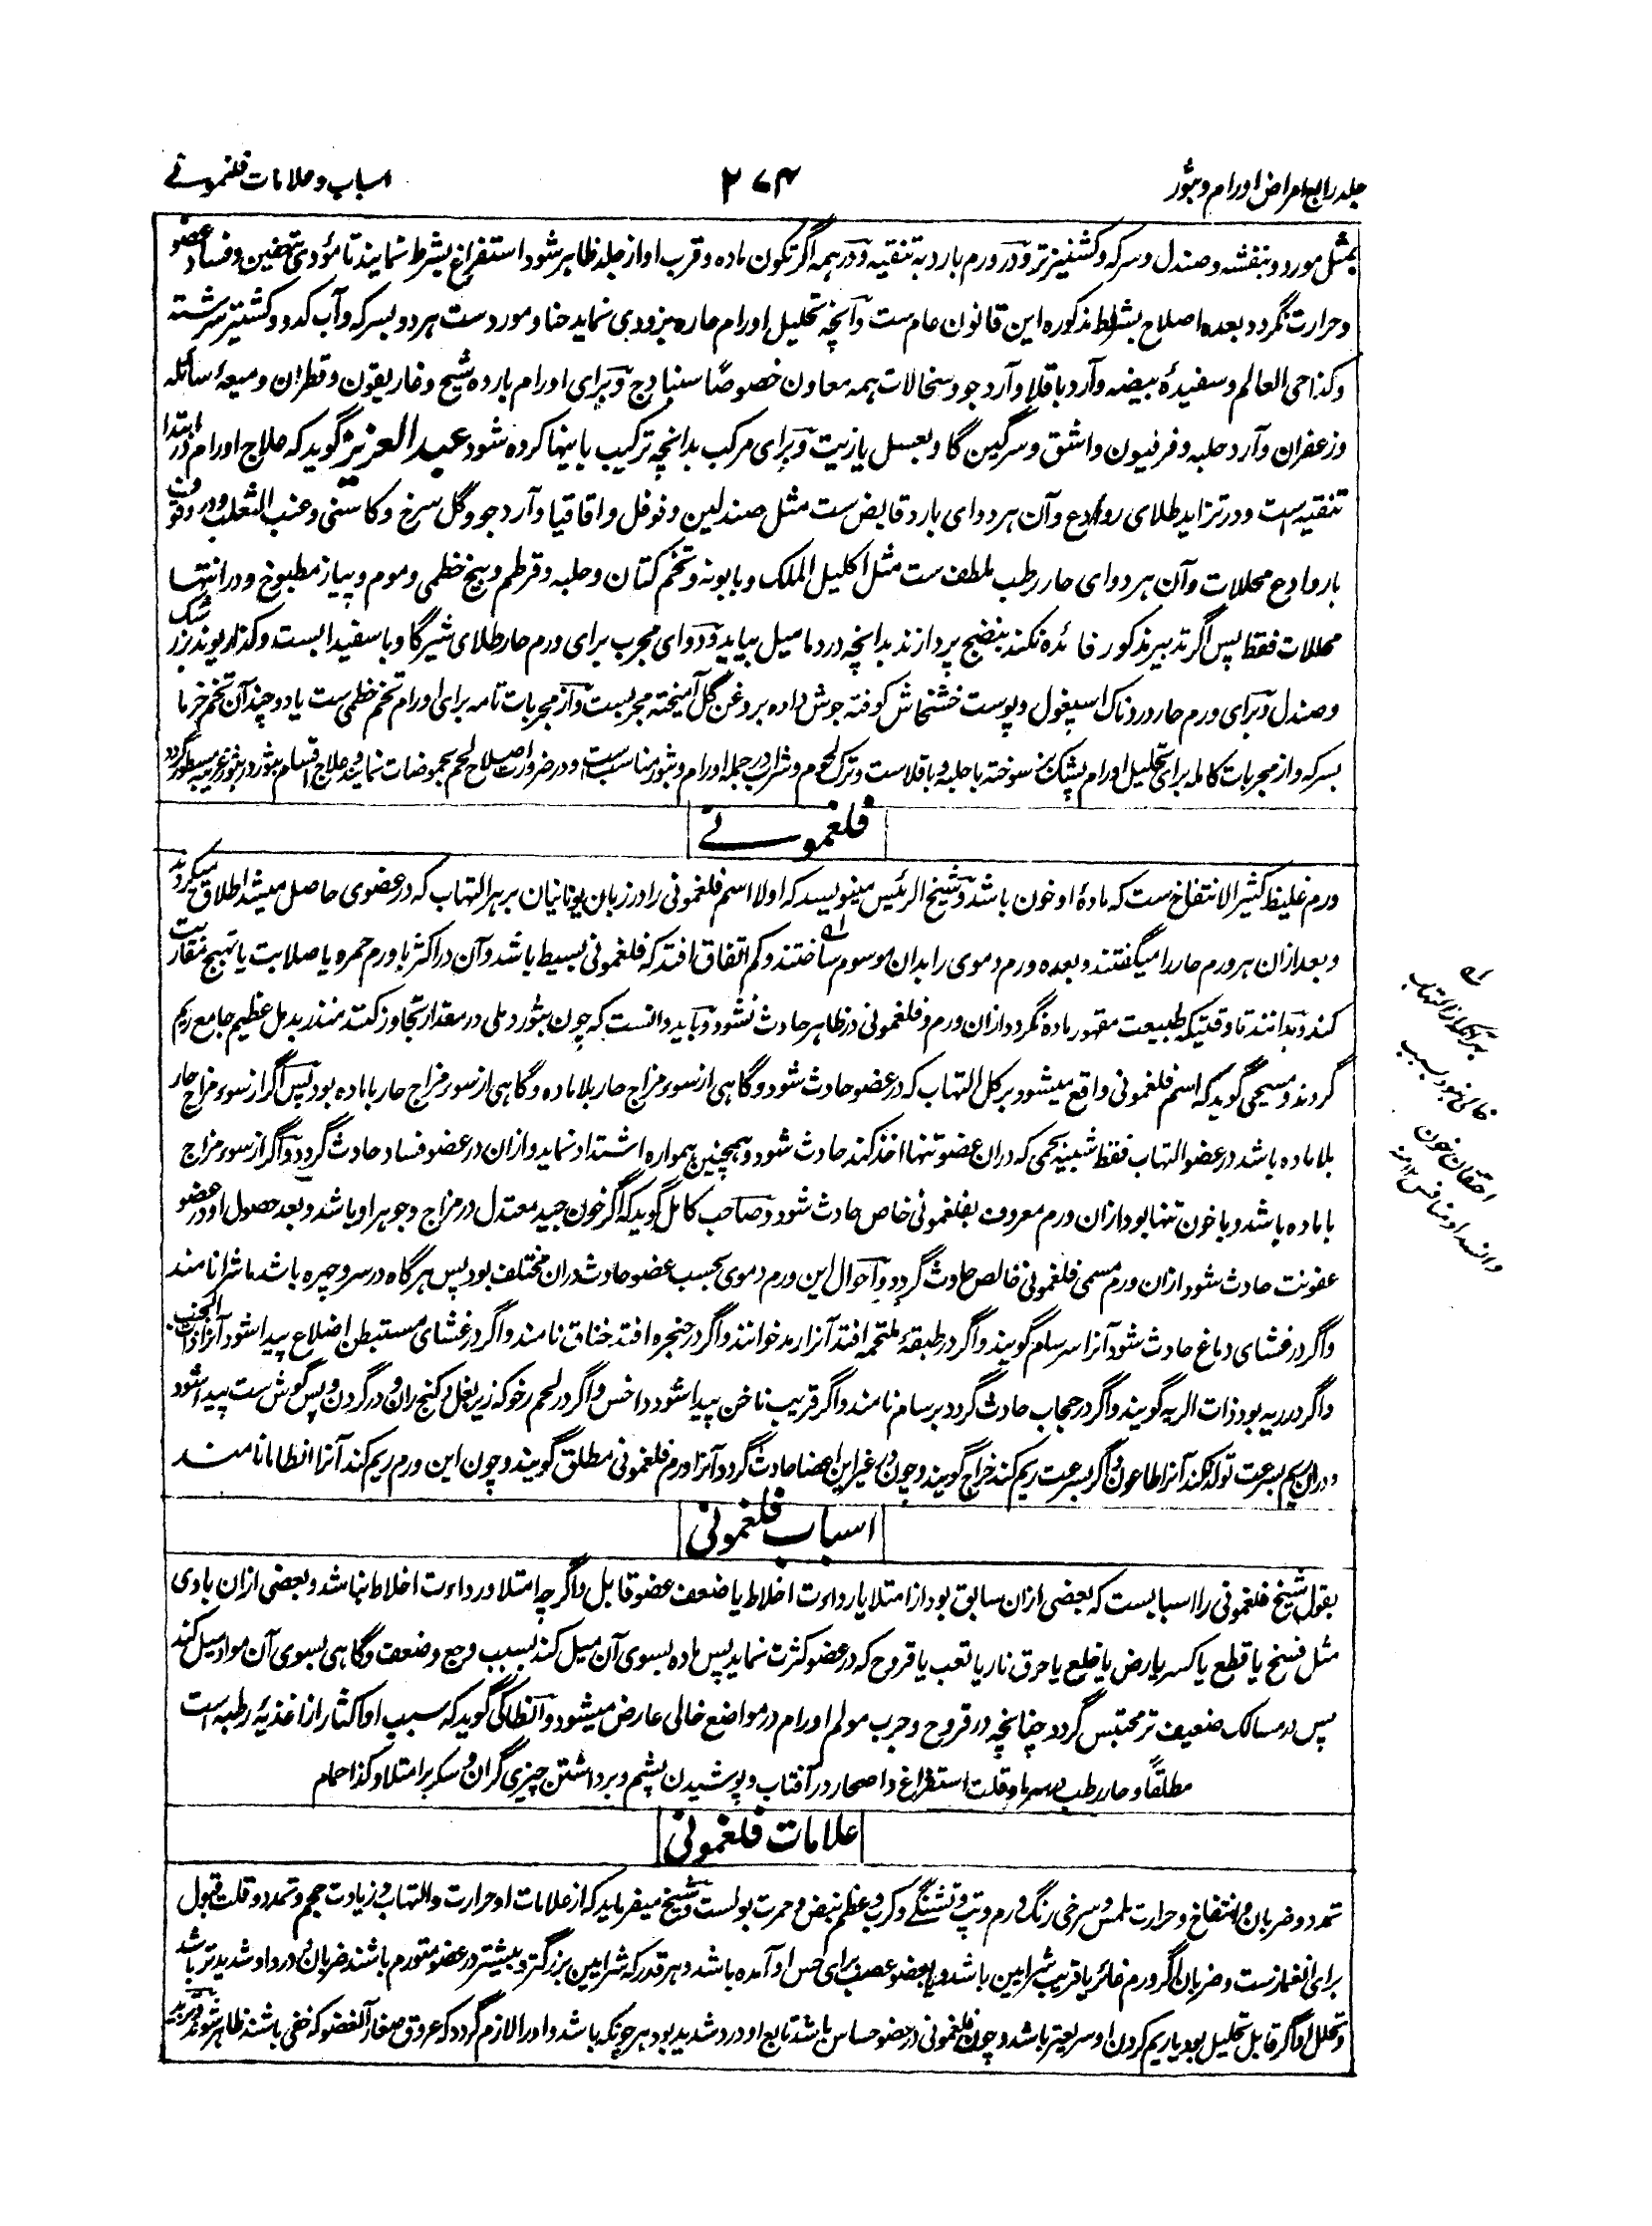 جلد رابع امراض اورام و بثور
۲۷۴
اسباب و علامات فلغمونی
بمثل مورد و بنفشه و صندل و سرکه و کشنیز تر و در ورم بارد به تنقیه و در همه اگر تکون ماده و قرب او از جلد ظاهر شود استفراغ بشرط نمایند تا مؤدی بتعفین و فساد عضو
و حرارت نگردد بعده اصلاح بشرائط مذکوره این قانون عام ست و آنچه تحلیل اورام حاره بزودی نماید حنا و مورد ست هر دو بسرکه و آب کدو و کشنیز سرشته
و کذا حی العالم و سفیدهٔ بیضه و آرد باقلا و آرد جو و نخالات همه معاون خصوصًا ستبادج و برای اورام بارده شیح و غاریقون و قطران و میعهٔ سائله
و زعفران و آرد حلبه و فرفیون و اشق و سرگین گاو بعسل یا زیت و برای مرکب بدانچه ترکیب یابد اینها کرده شود عبد العزیز گوید که علاج اورام در ابتدا
تنقیه است و در تزاید طلای روادع و آن هر دوای بارد قابض ست مثل صندلین و فوفل و اقاقیا و آرد جو و گل سرخ و کاسنی و عنب الثعلب و در وقوف
با روادع محللات و آن هر دوای حار رطب ملطف ست مثل اکلیل الملک و بابونه و تخم کتان و حلبه و قرطم و بیخ خطمی و موم و پیاز مطبوخ و در انتها
محللات فقط پس اگر تدبیر مذکور فائده نکند بنضج پردازند بدانچه در دمامیل بیاید و دوای مجرب برای ورم حار طلای شیر گاو با سفیداب ست و کذا ریوند بزرشک
و صندل و برای ورم حار دردناک اسپغول و پوست خشخاش کوفته جوش داده بروغن گل آمیخته مجرب ست و از مجربات تامه برای اورام تخم خطمی ست یا دو چند آن تخم خرما
بسرکه و از مجربات کامله برای تحلیل اورام پشک بز سوخته با حلبه و باقلاست و ترک لحوم و شراب در جمله اورام و بثور مناسب ست و در ضرورت اصلاح لحم بحموضات نمایند و علاج اقسام بثور در بثور غریبه مسطور گردد
فلغمونی
ورم غلیظ کثیر الانتفاخ ست که مادهٔ او خون باشد و شیخ الرئیس مینویسد که اولا اسم فلغمونی را در زبان یونانیان بر هر التهاب که در عضوی حاصل میشد اطلاق میکردند
و بعد ازان هر ورم حار را میگفتند و بعده ورم دموی را بدان موسوم ساختند و کم اتفاق افتد که فلغمونی بسیط باشد و آن در اکثر با ورم حمره یا صلابت یا تهبج مقاربت
کند و بدانند تا وقتیکه طبیعت مقهور ماده نگردد ازان ورم و فلغمونی در ظاهر حادث نشود و باید دانست که چون بثور دملی در مقدار تجاوز کنند منذر بدمل عظیم جامع ریم
گردند و مسیحی گوید که اسم فلغمونی واقع میشود بر کل التهاب که در عضو حادث شود و گاهی از سوء مزاج حار بلا ماده و گاهی از سوء مزاج حار با ماده بود پس اگر از سوء مزاج حار
بلا ماده باشد در عضو التهاب فقط شبیه بحمی که دران عضو تنها اخذ کند حادث شود و همچنین همواره اشتداد نماید و ازان در عضو فساد حادث گردد و اگر از سوء مزاج
با ماده باشد و با خون تنها بود ازان ورم معروف بفلغمونی خاص حادث شود و صاحب کامل گوید که اگر خون جید معتدل در مزاج و جوهر او باشد و بعد حصول او در عضو
عفونت حادث شود ازان ورم مسمی فلغمونی خالص حادث گردد و احوال این ورم دموی بحسب عضو حادث دران مختلف بود پس هرگاه در سر و چهره باشد ماشرا نامند
و اگر در غشای دماغ حادث شود آنرا سرسام گویند و اگر در طبقهٔ ملتحمه افتد آنرا رمد خوانند و اگر در حنجره افتد خناق نامند و اگر در غشای مستبطن اضلاع پیدا شود آنرا ذات الجنب
و اگر در ریه بود ذات الریه گویند و اگر در حجاب حادث گردد برسام نامند و اگر قریب ناخن پیدا شود داخس و اگر در لحم رخو که زیر بغل و کنج ران و در گردن و پس گوش ست پیدا شود
و دران ریم بسرعت تولد نکند آنرا طاعون و اگر بسرعت ریم کند خراج گویند و چون در غیر این اعضا حادث گردد آنرا ورم فلغمونی مطلق گویند و چون این ورم ریم کند آنرا انطاما نامند
اسباب فلغمونی
بقول شیخ فلغمونی را اسبابست که بعضی ازان سابق بود از امتلا یا رداءت اخلاط یا ضعف عضو قابل و اگرچه امتلا و رداءت اخلاط نباشد و بعضی ازان بادی
مثل فسخ یا قطع یا کسر یا رض یا خلع یا حرق نار یا تعب یا قروح که در عضو کثرت نماید پس ماده بسوی آن میل کند بسبب وجع و ضعف و گاهی بسوی آن مواد میل کند
پس در مسالک ضعیف تر محتبس گردد چنانچه در قروح و جرب مولم اورام در مواضع خالی عارض میشود و انطاکی گوید که سبب او اکثار از اغذیهٔ رطبه است
مطلقًا و حار رطب و قلت استفراغ و اصحار در آفتاب و پوشیدن پشم و برداشتن چیزی گران و سکر بر امتلا و کذا حمام
علامات فلغمونی
تمدد و ضربان و انتفاخ و حرارت ملمس و سرخی رنگ ورم و تپ و تشنگی و کرب و عظم نبض و حمرت بولست و شیخ میفرماید که از علامات او حرارت و التهاب و زیادت حجم و تمدد و قلت قبول
برای انغمازست و ضربان اگر ورم غائر یا قریب شرایین باشد و یا بعضو عصب برای حس او آمده باشد و هر قدر که شرایین بزرگتر و بیشتر در عضو متورم باشند ضربان و درد او شدیدتر باشد
و تحلل او اگر قابل تحلیل بود یا ریم کردن او سریعتر باشد و چون فلغمونی در عضو حساس باشد تابع او درد شدید بود هر چونکه باشد و او را لازم گردد که عروق صغار آن عضو که خفی باشند ظاهر شوند
احتقان خون